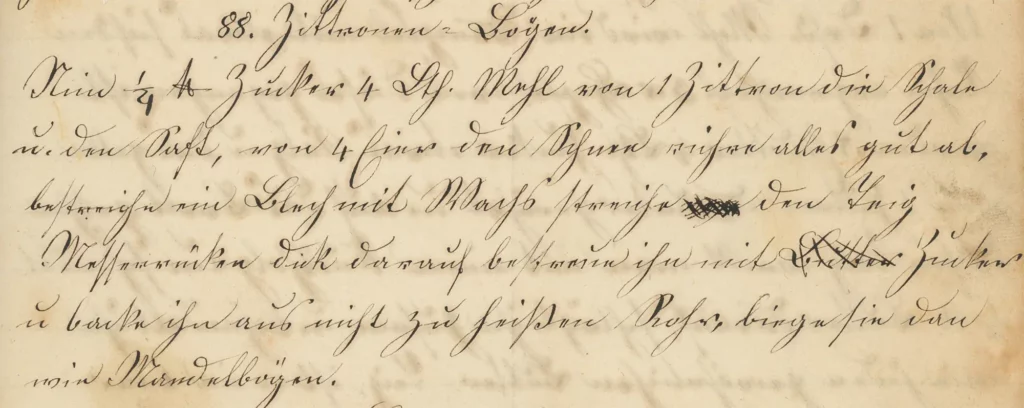 88. Zittronen-Bögen.
Nim 1/4 ℔ Zucker 4 Lth. Mehl von 1 Zittron die Schale
u. den Saft, von 4 Eier den Schnee rühre alles gut ab,
bestreiche ein Blech mit Wachs streiche den Teig
Messerrücken dick darauf bestreue ihn mit Butter Zucker
u backe ihn aus nicht zu heißen Rohr, biege sie dan
wie Mandelbögen.